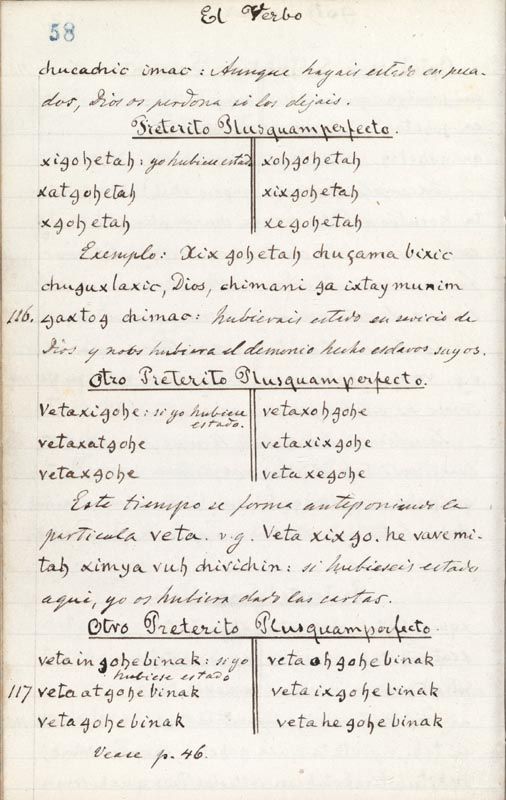 El Verbo
58
chucadric imac: Aunque hayais estado en peca-
dos, Dios os perdona si los dejais.
Preterito Plusquamperfecto.
xigohetah: yo hubiese estado xohgohetah
xatgohetah xixgohetah
xgohetah xegohetah
Exemplo: Xixgohetah chugama bixic
chuguxlaxic, Dios, chimani ga ixtaymunim
116. gaxtog chimac: hubierais estado en servicio de
Dios y no os hubiera el demonio hecho esclavos suyos.
Otro Preterito Plusquamperfecto.
Vetaxigohe: si yo hubiese estado. vetaxohgohe
vetaxatgohe vetaxixgohe
vetaxgohe vetaxegohe
Este tiempo se forma anteponiendo la
particula veta. v.g. Veta xixgo.he vave mi-
tah ximya vuh chivichin: si hubieseis estado
aqui, yo os hubiera dado las cartas.
Otro Preterito Plusquamperfecto
veta in gohebinak: si yo hubiese estado veta oh gohebinak
117 veta at gohebinak veta ix gohebinak
veta gohebinak veta he gohebinak
Vease p. 46.